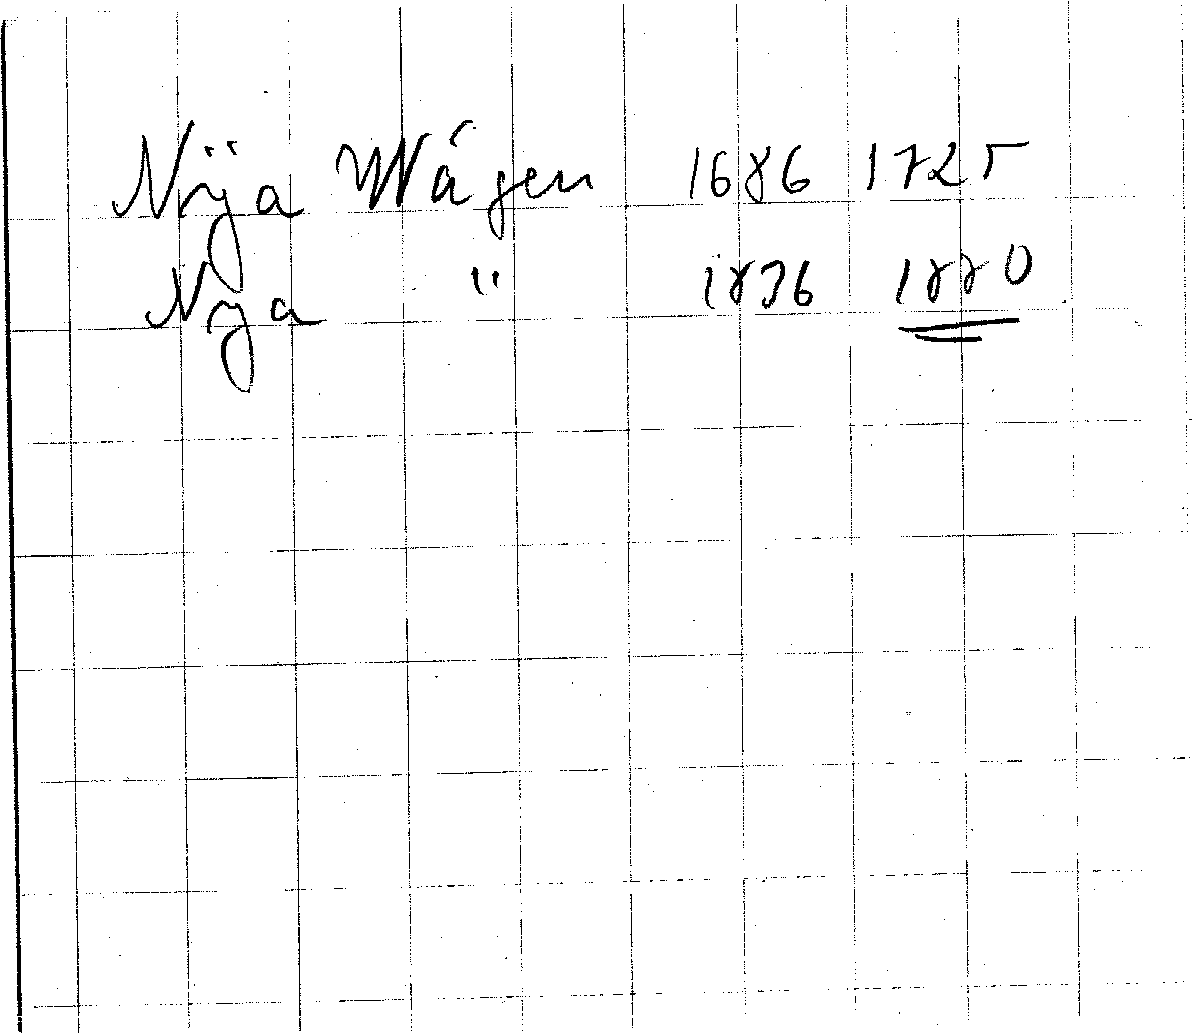 Nÿa Wágen 1686 1725
Nya " 1836 1880